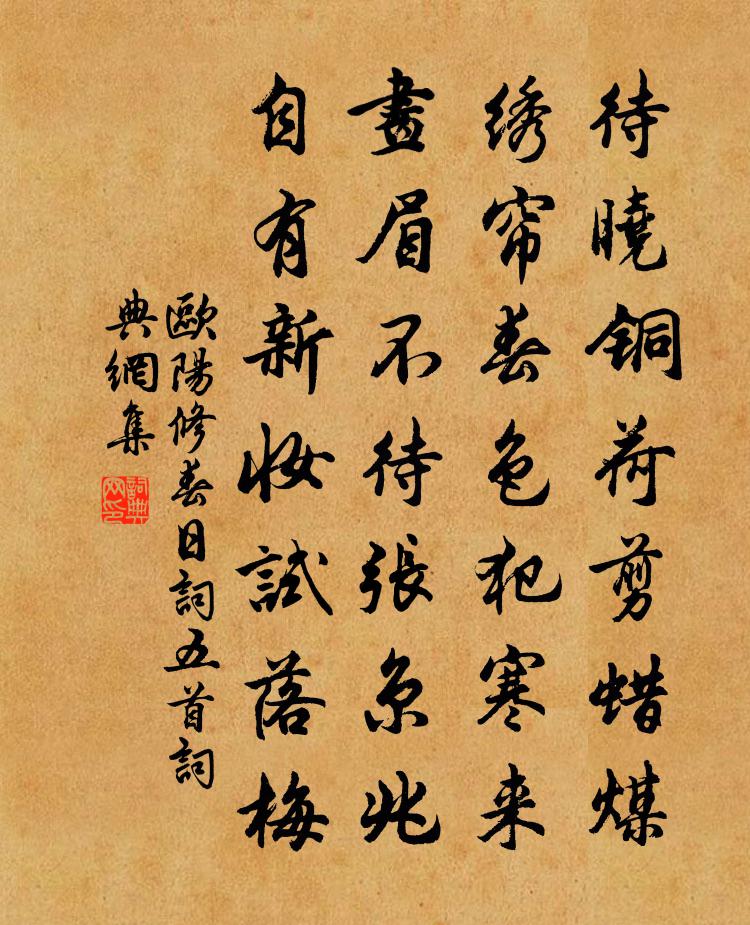 待曉铜荷剪蜡煤
绣帘春色犯寒来
畫眉不待張京兆
自有新妝試落梅
歐陽修春日詞五首詞
典網集
詞典
网印